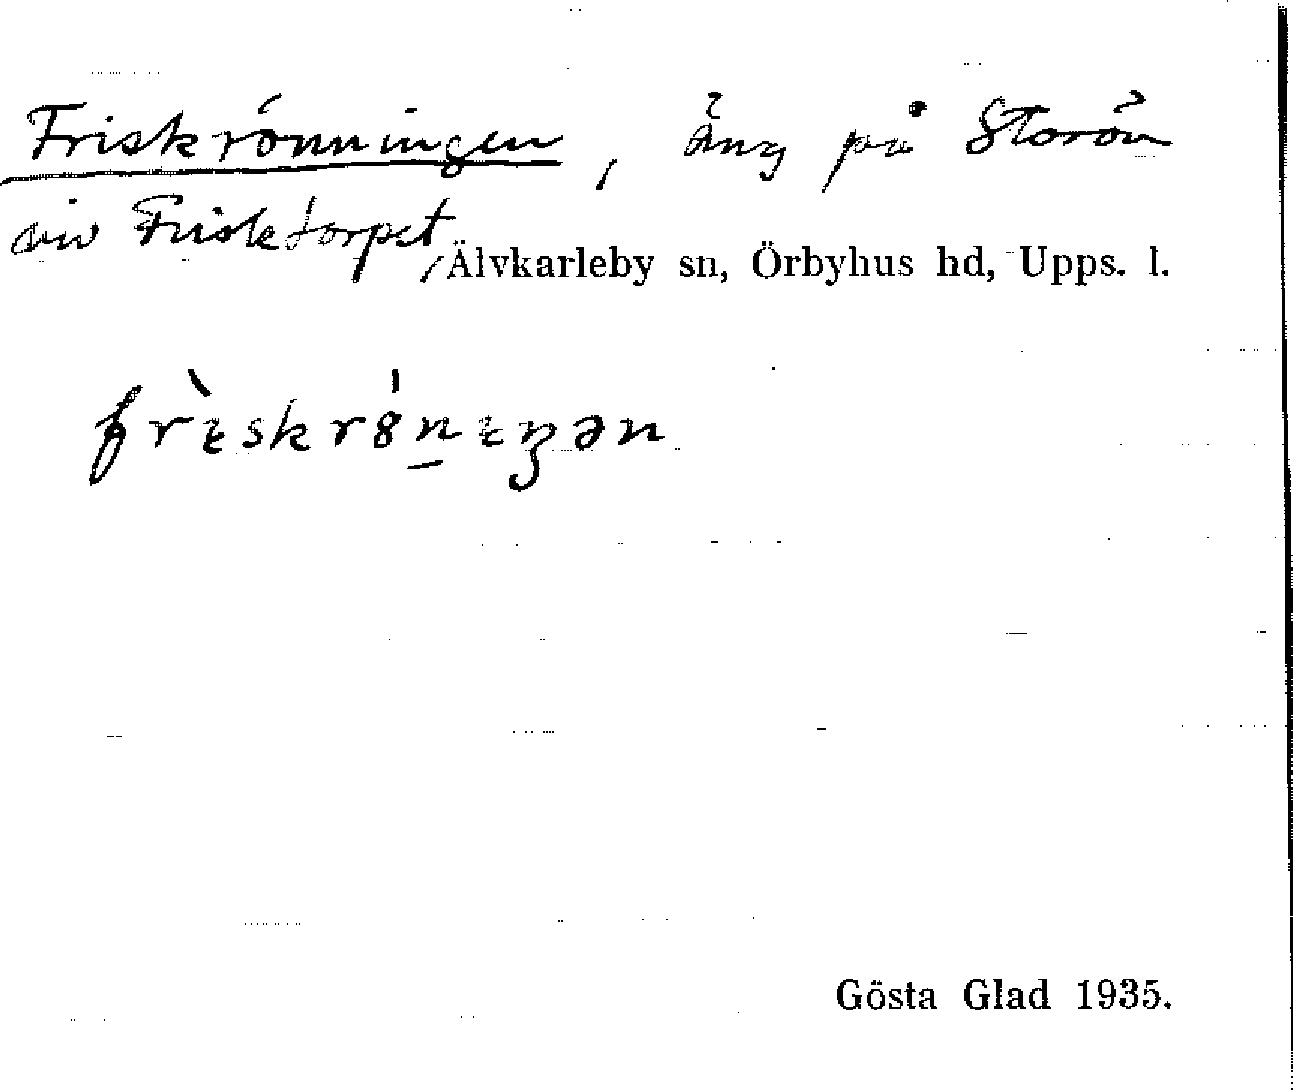 Friskrönningen, äng på Storön
vid Frisktorpet,
Älvkarleby sn, Örbyhus hd, Upps. l.
Gösta Glad 1935.